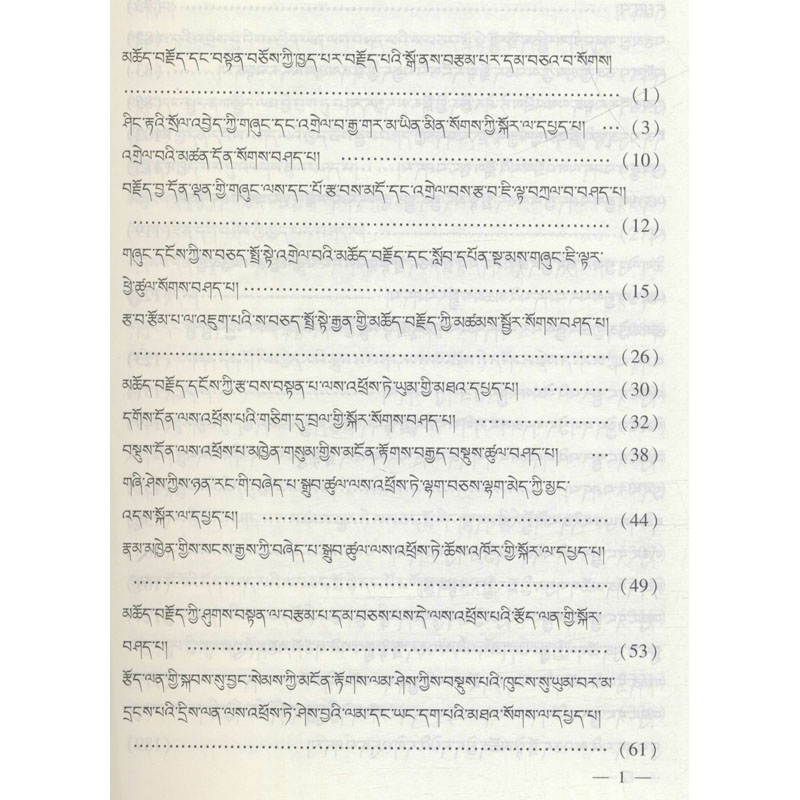 མཆོད་བརྗོད་དང་བསྟན་བཅོས་ཀྱི་ཁྱད་པར་བརྗོད་པའི་སྒོ་ནས་བརྩམ་པར་དམ་བཅའ་བ་སོགས།
……………………………………………………………………………… (1)
ཤིང་རྟའི་སྲོལ་འབྱེད་ཀྱི་གཞུང་དང་འགྲེལ་བ་རྒྱ་གར་མ་ཡིན་མིན་སོགས་ཀྱི་སྐོར་ལ་དཔྱད་པ། … (3)
འགྲེལ་བའི་མཚན་དོན་སོགས་བཤད་པ། ……………………………………… (10)
བརྗོད་བྱ་དོན་ལྡན་གྱི་གཞུང་ལས་དང་པོ་རྩ་བས་མདོ་དང་འགྲེལ་བས་རྩ་བ་ཇི་ལྟ་བཀྲལ་བ་བཤད་པ།
……………………………………………………………………………… (12)
གཞུང་དངོས་ཀྱི་ས་བཅད་སྤྲོ་སྟེ་འགྲེལ་བའི་མཆོད་བརྗོད་དང་སློབ་དཔོན་སྔ་མས་གཞུང་ཇི་ལྟར་
ཕྱེ་ཚུལ་སོགས་བཤད་པ། …………………………………………………… (15)
རྩ་བ་རྩོམ་པ་ལ་འཇུག་པའི་ས་བཅད་སྤྲོ་སྟེ་རྒྱན་གྱི་མཆོད་བརྗོད་ཀྱི་མཚམས་སྦྱོར་སོགས་བཤད་པ།
……………………………………………………………………………… (26)
མཆོད་བརྗོད་དངོས་ཀྱི་རྩ་བས་བསྟན་པ་ལས་འཕྲོས་ཏེ་ཡུམ་གྱི་མཐའ་དཔྱད་པ། ………… (30)
དགོས་དོན་ལས་འཕྲོས་པའི་གཅིག་དུ་བྲལ་གྱི་སྐོར་སོགས་བཤད་པ། …………………… (32)
བསྡུས་དོན་ལས་འཕྲོས་པ་མཁྱེན་གསུམ་གྱིས་མངོན་རྟོགས་བརྒྱད་བསྡུས་ཚུལ་བཤད་པ། …… (38)
གཞི་ཤེས་ཀྱིས་ཉན་རང་གི་བཞེད་པ་སྒྲུབ་ཚུལ་ལས་འཕྲོས་ཏེ་ལྷག་བཅས་ལྷག་མེད་ཀྱི་མྱང་
འདས་སྐོར་ལ་དཔྱད་པ། …………………………………………………… (44)
རྣམ་མཁྱེན་གྱིས་སངས་རྒྱས་ཀྱི་བཞེད་པ་སྒྲུབ་ཚུལ་ལས་འཕྲོས་ཏེ་ཆོས་འཁོར་གྱི་སྐོར་ལ་དཔྱད་པ།
……………………………………………………………………………… (49)
མཆོད་བརྗོད་ཀྱི་ཤུགས་བསྟན་ལ་བརྩམ་པ་དམ་བཅས་པས་དེ་ལས་འཕྲོས་པའི་རྩོད་ལན་གྱི་སྐོར་
བཤད་པ། ………………………………………………………………… (53)
རྩོད་ལན་གྱི་སྐབས་སུ་བྱང་སེམས་ཀྱི་མངོན་རྟོགས་ལམ་ཤེས་ཀྱིས་བསྡུས་པའི་ཁུངས་སུ་ཡུམ་བར་མ་
དྲངས་པའི་དྲིས་ལན་ལས་འཕྲོས་ཏེ་ཤེས་བྱའི་ལམ་དང་ཡང་དག་པའི་མཐའ་སོགས་ལ་དཔྱད་པ།
……………………………………………………………………………… (61)
— 1 —